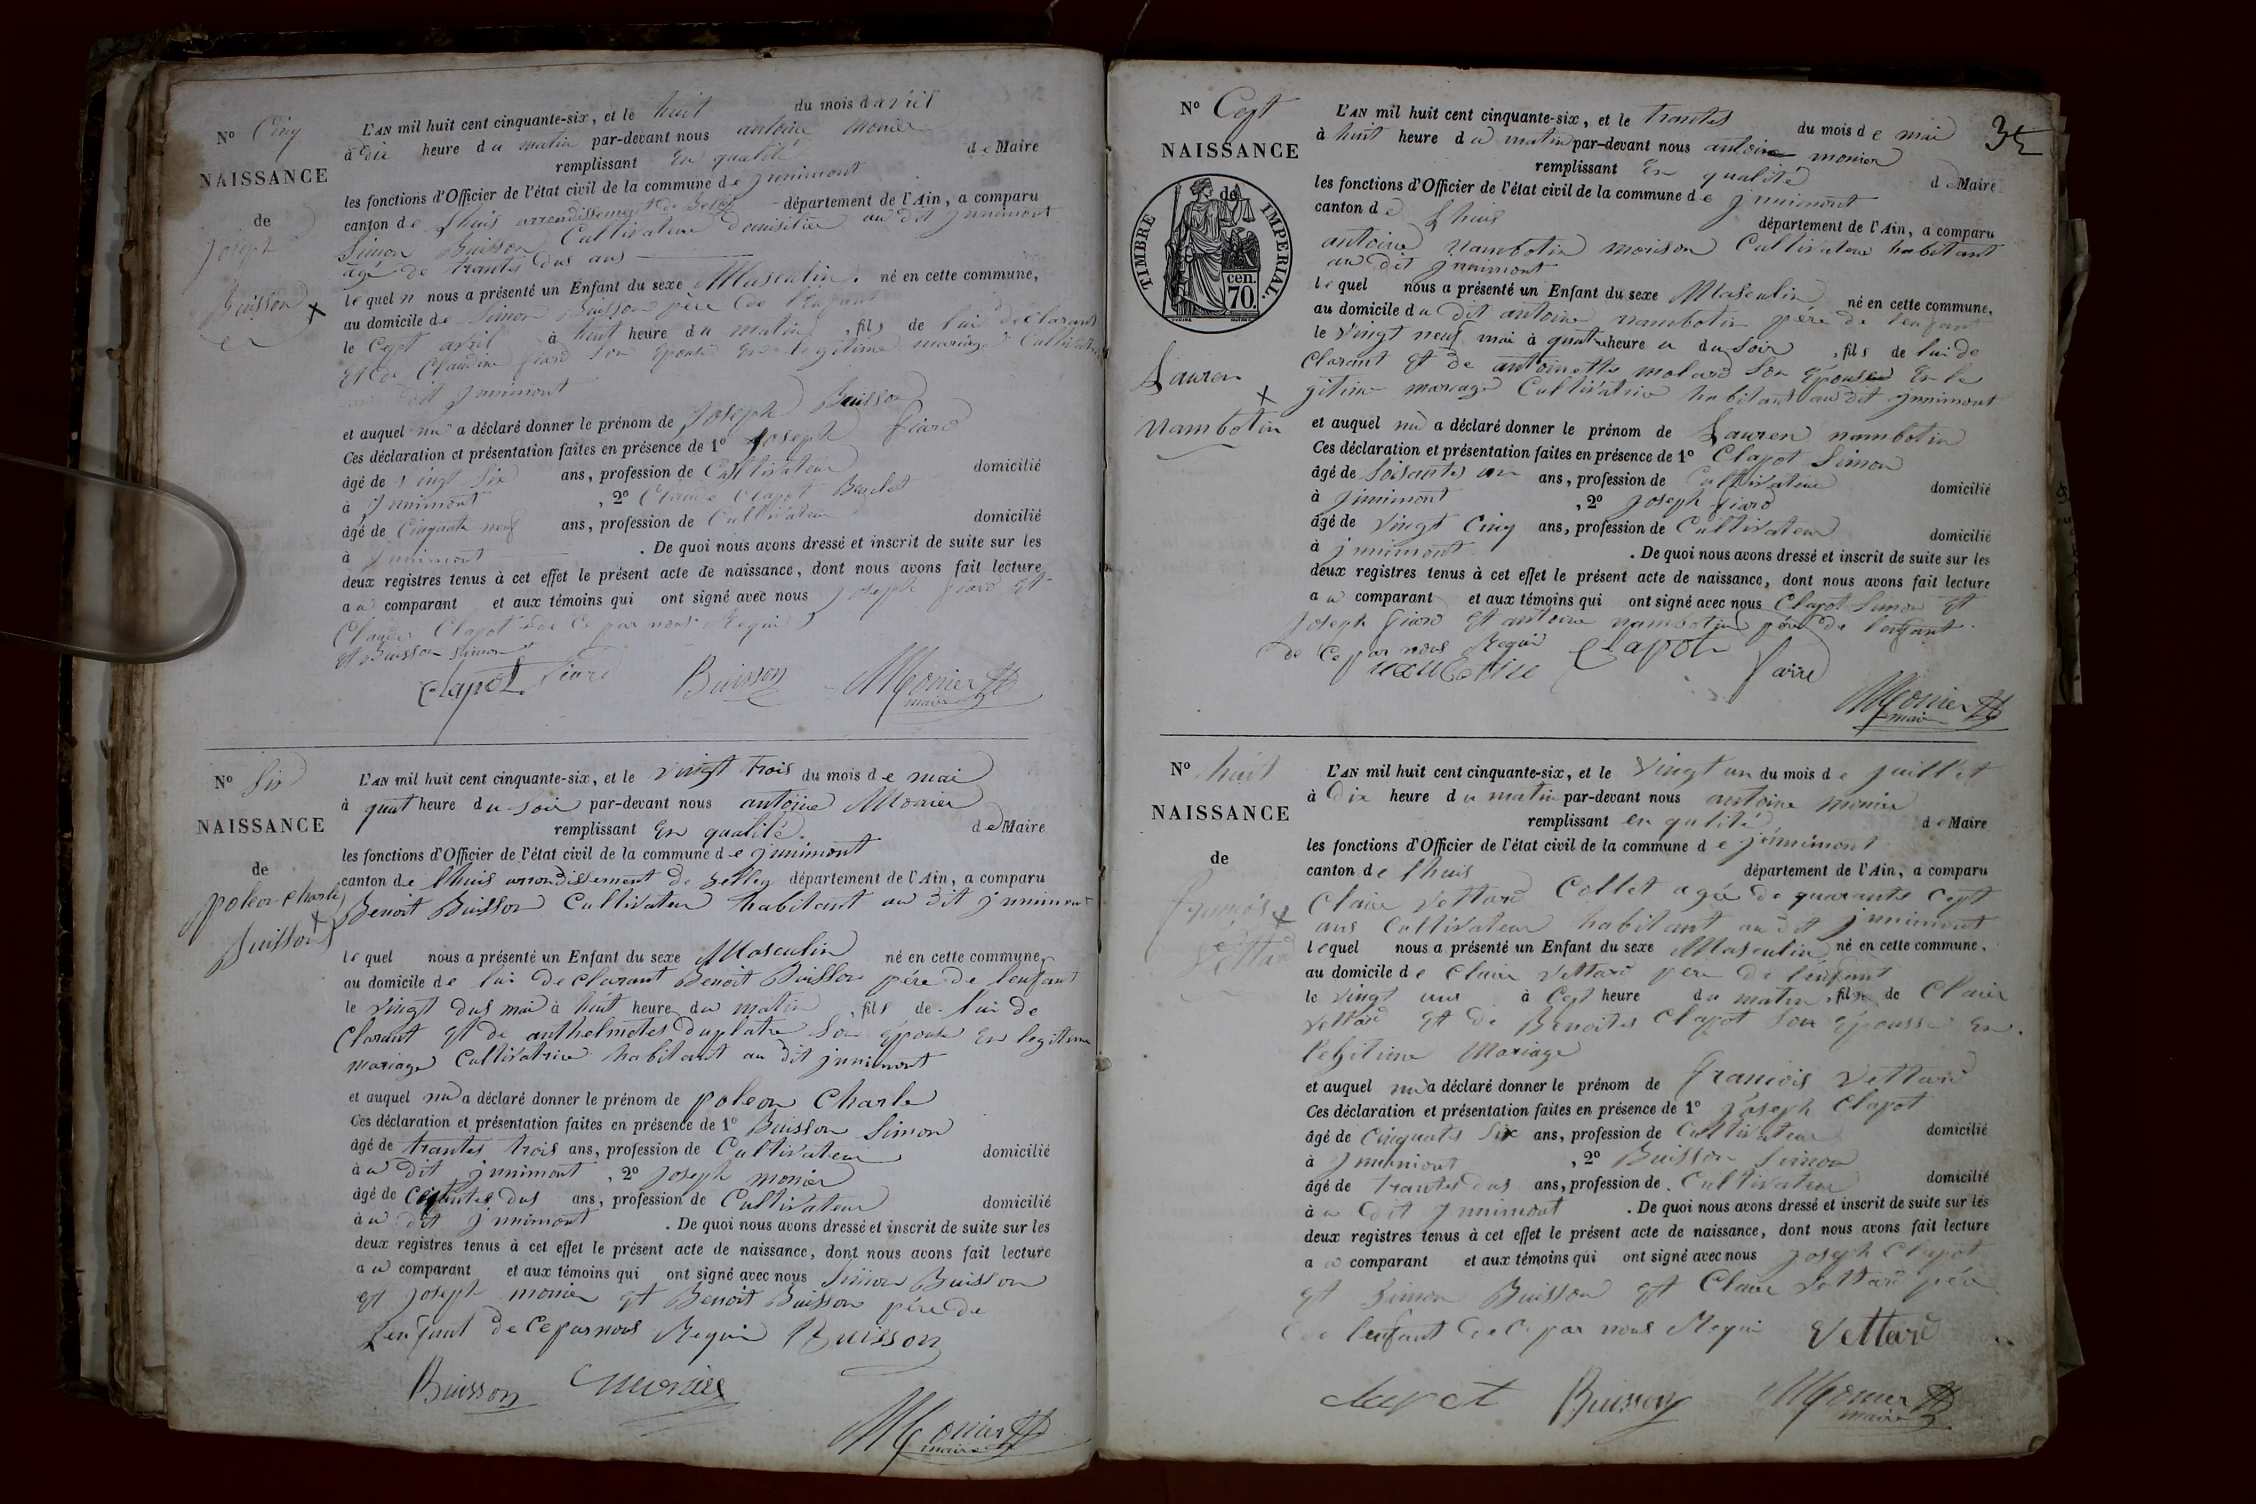 N° Cinq
NAISSANCE
de
Joseph
Buisson
L'AN mil huit cent cinquante-six, et le huit du mois d avril
à dix heure du matin par-devant nous antoine monier
remplissant En qualité de Maire
les fonctions d'Officier de l'état civil de la commune de jnnimont
canton de Lhuis arrondissement de Belley département de l'Ain, a comparu
Simon Buisson Cultivateur domicilier au dit jnnimont
agé de trantes dus ans
le quel nous a présenté un Enfant du sexe Masculin. né en cette commune,
au domicile de Simon Buisson père de l'enfant
le Cept avril à huit heure du matin, fils de lui declarant
Et de Claudine fiard Son Epouse En legitime mariage Cultivatrice
dit jnnimont
et auquel a déclaré donner le prénom de Joseph Buisson
Ces déclaration et présentation faites en présence de 1° Joseph fiard
âgé de vingt Six ans, profession de Cultivateur domicilié
à jnnimont, 2° Claude Clapot
âgé de Cinquante neuf ans, profession de Cultivateur domicilié
à jnnimont. De quoi nous avons dressé et inscrit de suite sur les
deux registres tenus à cet effet le présent acte de naissance, dont nous avons fait lecture
au comparant et aux témoins qui ont signé avec nous joseph fiard Et
Claude Clapot de Ce par nous Requi
Et Buisson Simon
Clapot fiard Buisson Monier
maire
N° Six
NAISSANCE
de
poleon Charle
Buisson
L'AN mil huit cent cinquante-six, et le vingt trois du mois de mai
à quat heure du soir par-devant nous antoine Monier
remplissant En qualité de Maire
les fonctions d'Officier de l'état civil de la commune de jnnimont
canton de lhuis arrondissement de Belley département de l'Ain, a comparu
Benoit Buisson Cultivateur habitant au dit jnnimont
lequel nous a présenté un Enfant du sexe Masculin né en cette commune,
au domicile de lui declarant Benoit Buisson père de l'enfant
le vingt dus mai à huit heure du matin, fils de lui de
clarant Et de anthelmetes duplatre Son Epouse En legitime
mariage Cultivatrice habitant au dit jnnimont
et auquel a déclaré donner le prénom de poleon Charle
Ces déclaration et présentation faites en présence de 1° Buisson Simon
âgé de trantes trois ans, profession de Cultivateur domicilié
à u dit jnnimont, 2° Joseph monier
âgé de dus ans, profession de Cultivateur domicilié
à u dit jnnimont. De quoi nous avons dressé et inscrit de suite sur les
deux registres tenus à cet effet le présent acte de naissance, dont nous avons fait lecture
au comparant et aux témoins qui ont signé avec nous Simon Buisson
Et joseph monier Et Benoit Buisson père de
Lenfant de Ce par nous Requi Buisson
Buisson monier
Monier
maire
35
N° Cept
NAISSANCE
de
TIMBRE IMPERIAL.
cen.
70.
Lauren
nambotin
L'AN mil huit cent cinquante-six, et le trantes du mois de mai
à huit heure du matin par-devant nous antoine monier
remplissant En qualité de Maire
les fonctions d'Officier de l'état civil de la commune de jnnimont
canton de Lhuis département de l'Ain, a comparu
antoine nambotin moison Cultivateur habitant
au dit jnnimont
lequel nous a présenté un Enfant du sexe Masculin né en cette commune,
au domicile du dit antoine nambotin père de l'enfant
le vingt neuf mai à quatre heure du soir, fils de lui de
clarant Et de antoinette molard Son Epouse En le
gitime mariage Cultivatrice habitant au dit jnnimont
et auquel a déclaré donner le prénom de Lauren nambotin
Ces déclaration et présentation faites en présence de 1° Clapot Simon
âgé de soisantes un ans, profession de Cultivateur domicilié
à jnnimont, 2° Joseph fiard
âgé de vingt Cinq ans, profession de Cultivateur domicilié
à jnnimont. De quoi nous avons dressé et inscrit de suite sur les
deux registres tenus à cet effet le présent acte de naissance, dont nous avons fait lecture
au comparant et aux témoins qui ont signé avec nous Clapot Simon Et
Joseph fiard Et antoine nambotin père de lenfant
de Ce par nous Requi
nambotin Clapot fiard
Monier
maire
N° huit
NAISSANCE
de
françois
Vettard
L'AN mil huit cent cinquante-six, et le vingt un du mois de juillet
à dix heure du matin par-devant nous antoine monier
remplissant en qulité de Maire
les fonctions d'Officier de l'état civil de la commune de jnnimont
canton de lhuis département de l'Ain, a comparu
Claire Vettard Collet agée de quarante Cept
ans Cultivateur habitant au dit jnnimont
lequel nous a présenté un Enfant du sexe Masculin né en cette commune,
au domicile de Claire Vettard pere de l'enfant
le vingt uns à Cept heure du matin, fils de Claire
Vettard Et de Benoites Clapot Son Epousse En
legitime Mariage
et auquel a déclaré donner le prénom de francois Vettard
Ces déclaration et présentation faites en présence de 1° Joseph Clapot
âgé de Cinquantes Six ans, profession de Cultivateur domicilié
à jnnimont, 2° Buisson Simon
âgé de trantes dus ans, profession de Cultivateur domicilié
à u dit jnnimont. De quoi nous avons dressé et inscrit de suite sur les
deux registres tenus à cet effet le présent acte de naissance, dont nous avons fait lecture
au comparant et aux témoins qui ont signé avec nous Joseph Clapot
Et Simon Buisson Et Claire Vettard père
de lenfant de Ce par nous Requi Vettard
Clapot Buisson Monier
maire